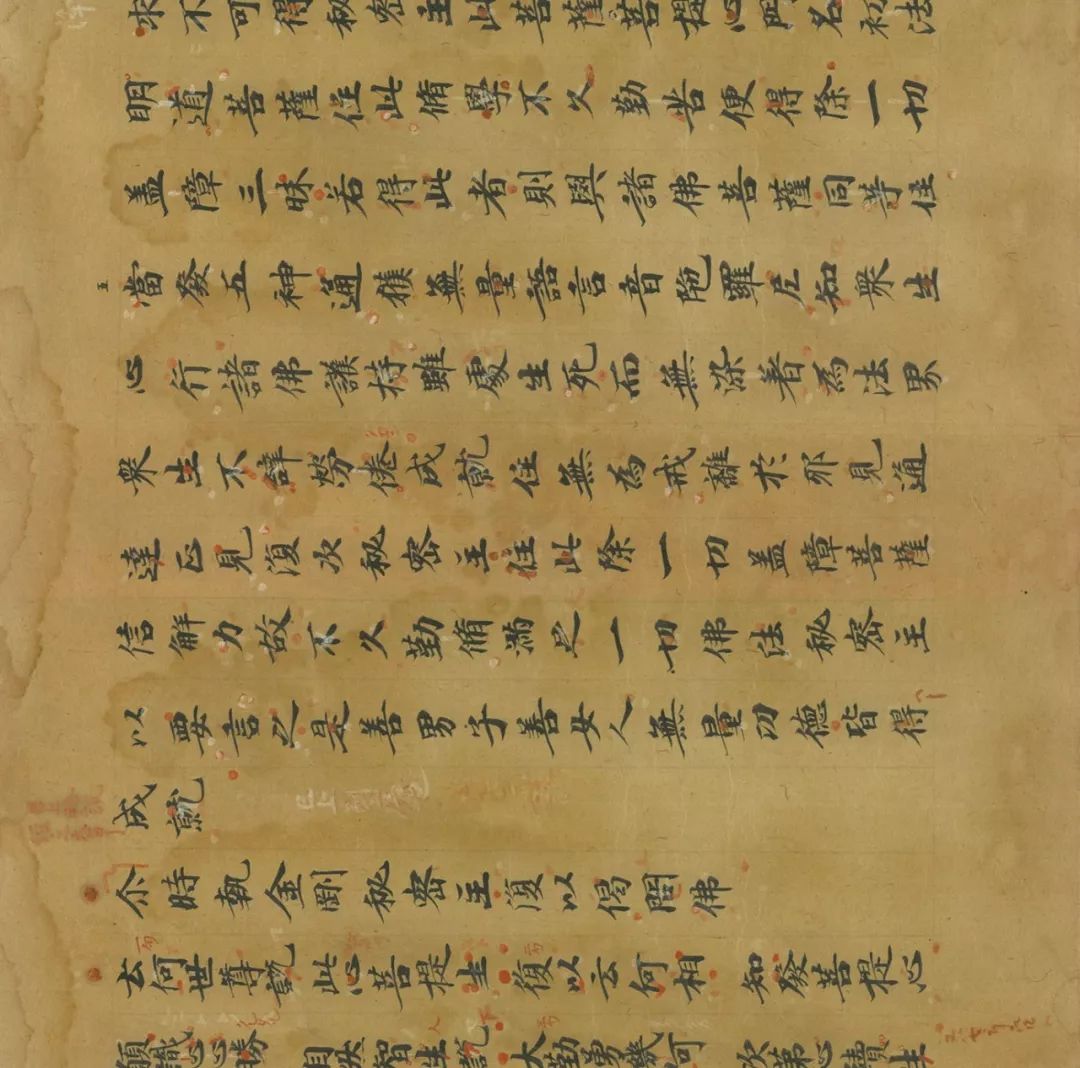 求不可得秘密主此菩薩菩提心門名初法
明道菩薩住此脩學不久勤苦便得除一切
盖障三昧若得此者則與諸佛菩薩同等住
當發五神通獲無量語言音陁羅尼知衆生
心行諸佛護持雖處生死而無染著為法界
衆生不辭勞倦成就住無為戒離於邪見通
達正見復次秘密主住此除一切盖障菩薩
信解力故不久勤脩滿足一切佛法秘密主
以要言之是善男子善女人無量功德皆得
成就
尒時執金剛秘密主復以偈問佛
云何世尊說 此心菩提生 復以云何相 知發菩提心
願識心心勝 自然智生說 大勤勇幾何 次第心續生